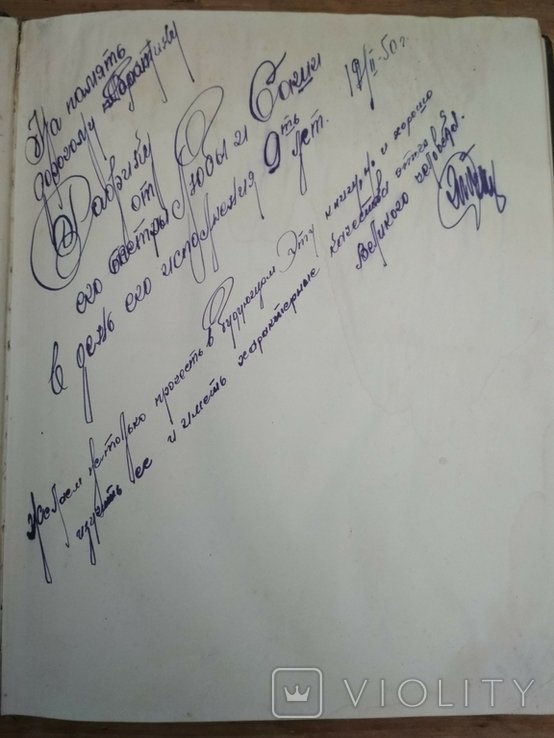 На память
дорогому братику
Фабрику
от
его сестры Любы и Сокии
в день его исполнения 9ть лет.
19/II-50 г.
Желаем не только прочесть в будующем эту книгу, но и хорошо
изучить ее и иметь характерные качества этого
великого человека.
VIOLITY